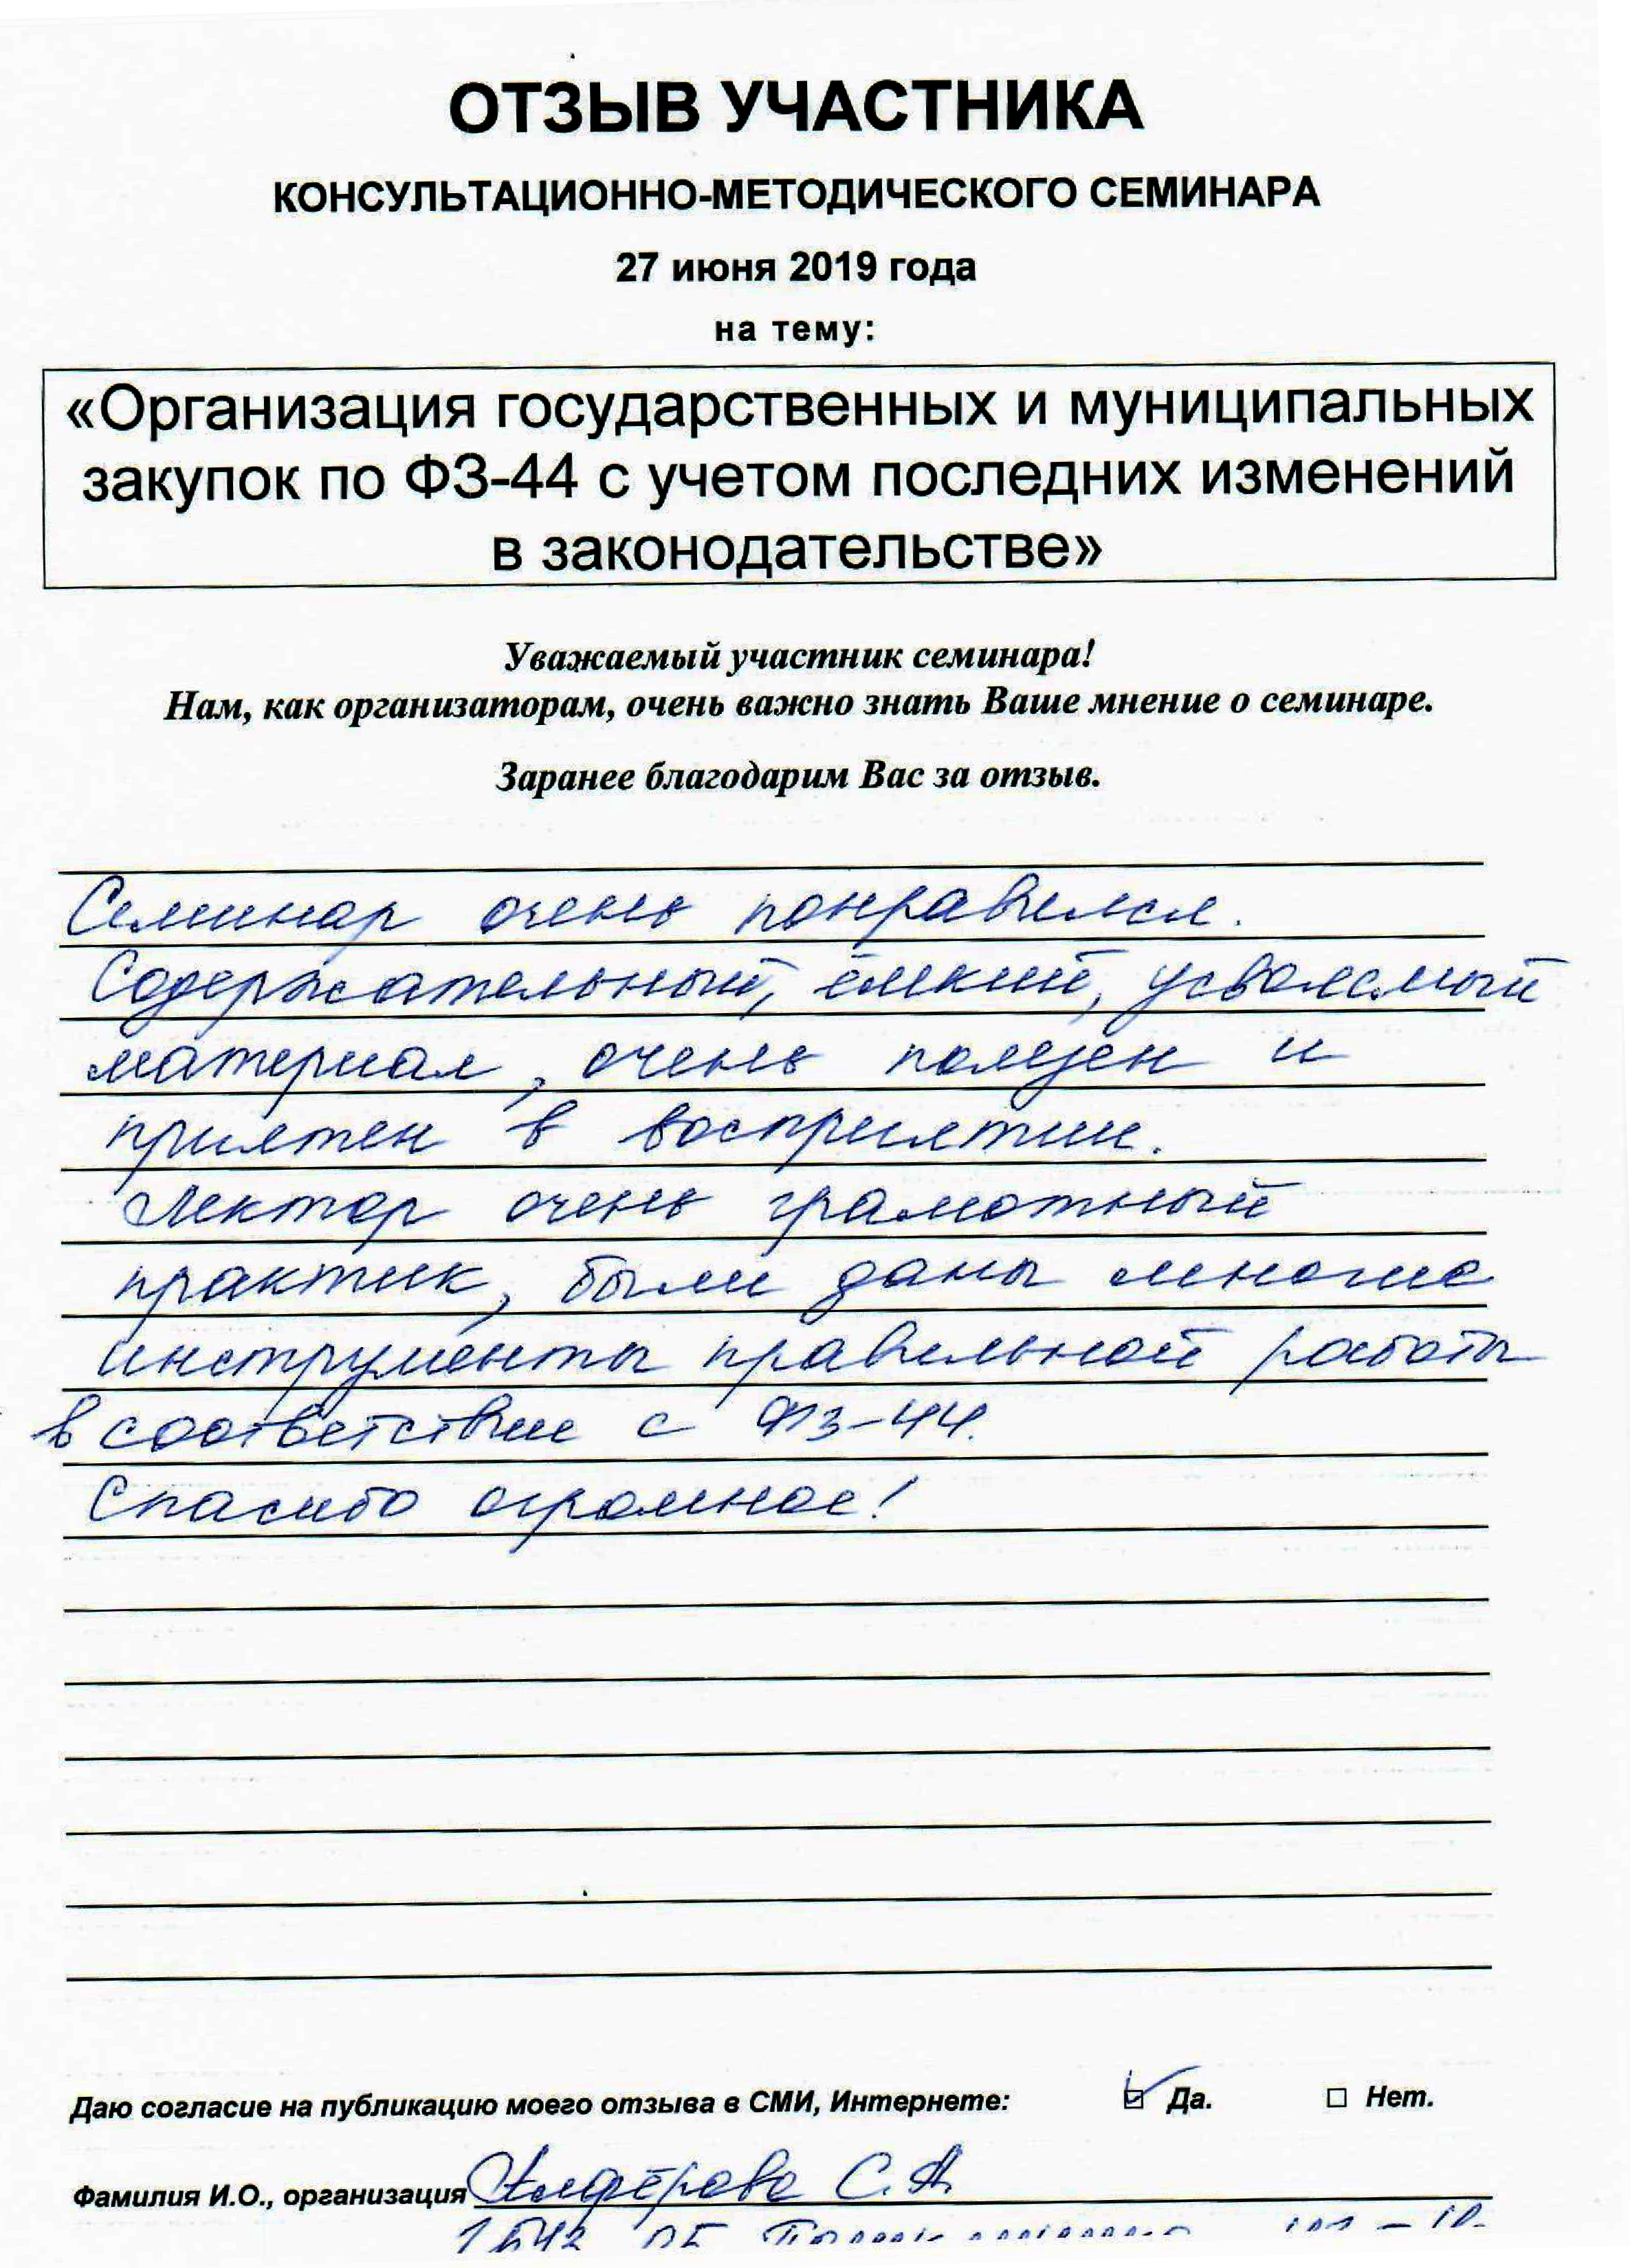 ОТЗЫВ УЧАСТНИКА
КОНСУЛЬТАЦИОННО-МЕТОДИЧЕСКОГО СЕМИНАРА
27 июня 2019 года
на тему:
«Организация государственных и муниципальных
закупок по ФЗ-44 с учетом последних изменений
в законодательстве»
Уважаемый участник семинара!
Нам, как организаторам, очень важно знать Ваше мнение о семинаре.
Заранее благодарим Вас за отзыв.
Семинар очень понравился.
Содержательный, ёмкий, усвояемый
материал, очень полезен и
приятен в восприятии.
Лектор очень грамотный
практик, были даны многие
инструменты правильной работы
в соответствие с ФЗ-44.
Спасибо огромное!
Даю согласие на публикацию моего отзыва в СМИ, Интернете: Да. Нет.
Фамилия И.О., организация Алфёрова С.А.